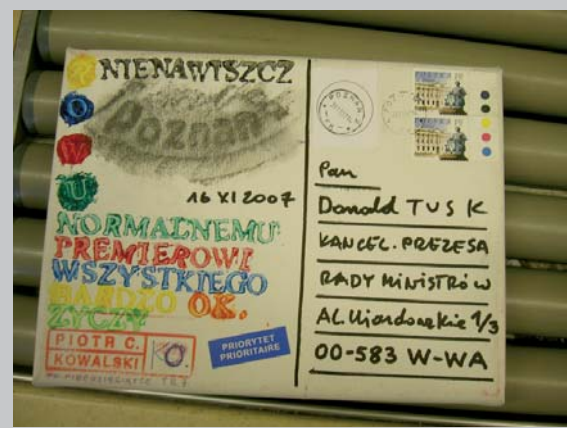 NIENAWISZCZ
Poznań
16 XI 2007
NORMALNEMU
PREMIEROWI
WSZYSTKIEGO
BARDZO OK.
ŻYCZY
PIOTR C.
KOWALSKI
PRIORYTET
PRIORITAIRE
POZNAŃ
POLSKA
POLSKA
Pan
Donald TUSK
KANCEL. PREZESA
RADY MINISTRÓW
AL. Ujazdowskie 1/3
00-583 W-WA